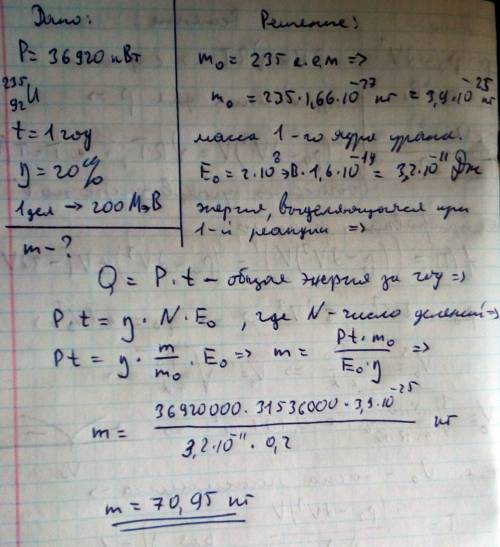 Дано:
P = 36920 кВт
²³⁵₉₂U
t = 1 год
η = 20%
1 дел → 200 МэВ
m - ?
Решение:
m₀ = 235 а.е.м =>
m₀ = 235 · 1,66 · 10⁻²⁷ кг = 3,9 · 10⁻²⁵ кг
масса 1-го ядра урана.
E₀ = 2 · 10⁸ эВ · 1,6 · 10⁻¹⁹ = 3,2 · 10⁻¹¹ Дж
энергия, выделяющаяся при
1-й реакции =>
Q = P · t - общая энергия за год =>
P · t = η · N · E₀ , где N - число делений =>
Pt = η · m/m₀ · E₀ => m = Pt · m₀ / E₀ · η =>
m = 36920000 · 31536000 · 3,9 · 10⁻²⁵ / 3,2 · 10⁻¹¹ · 0,2 кг
m = 70,95 кг